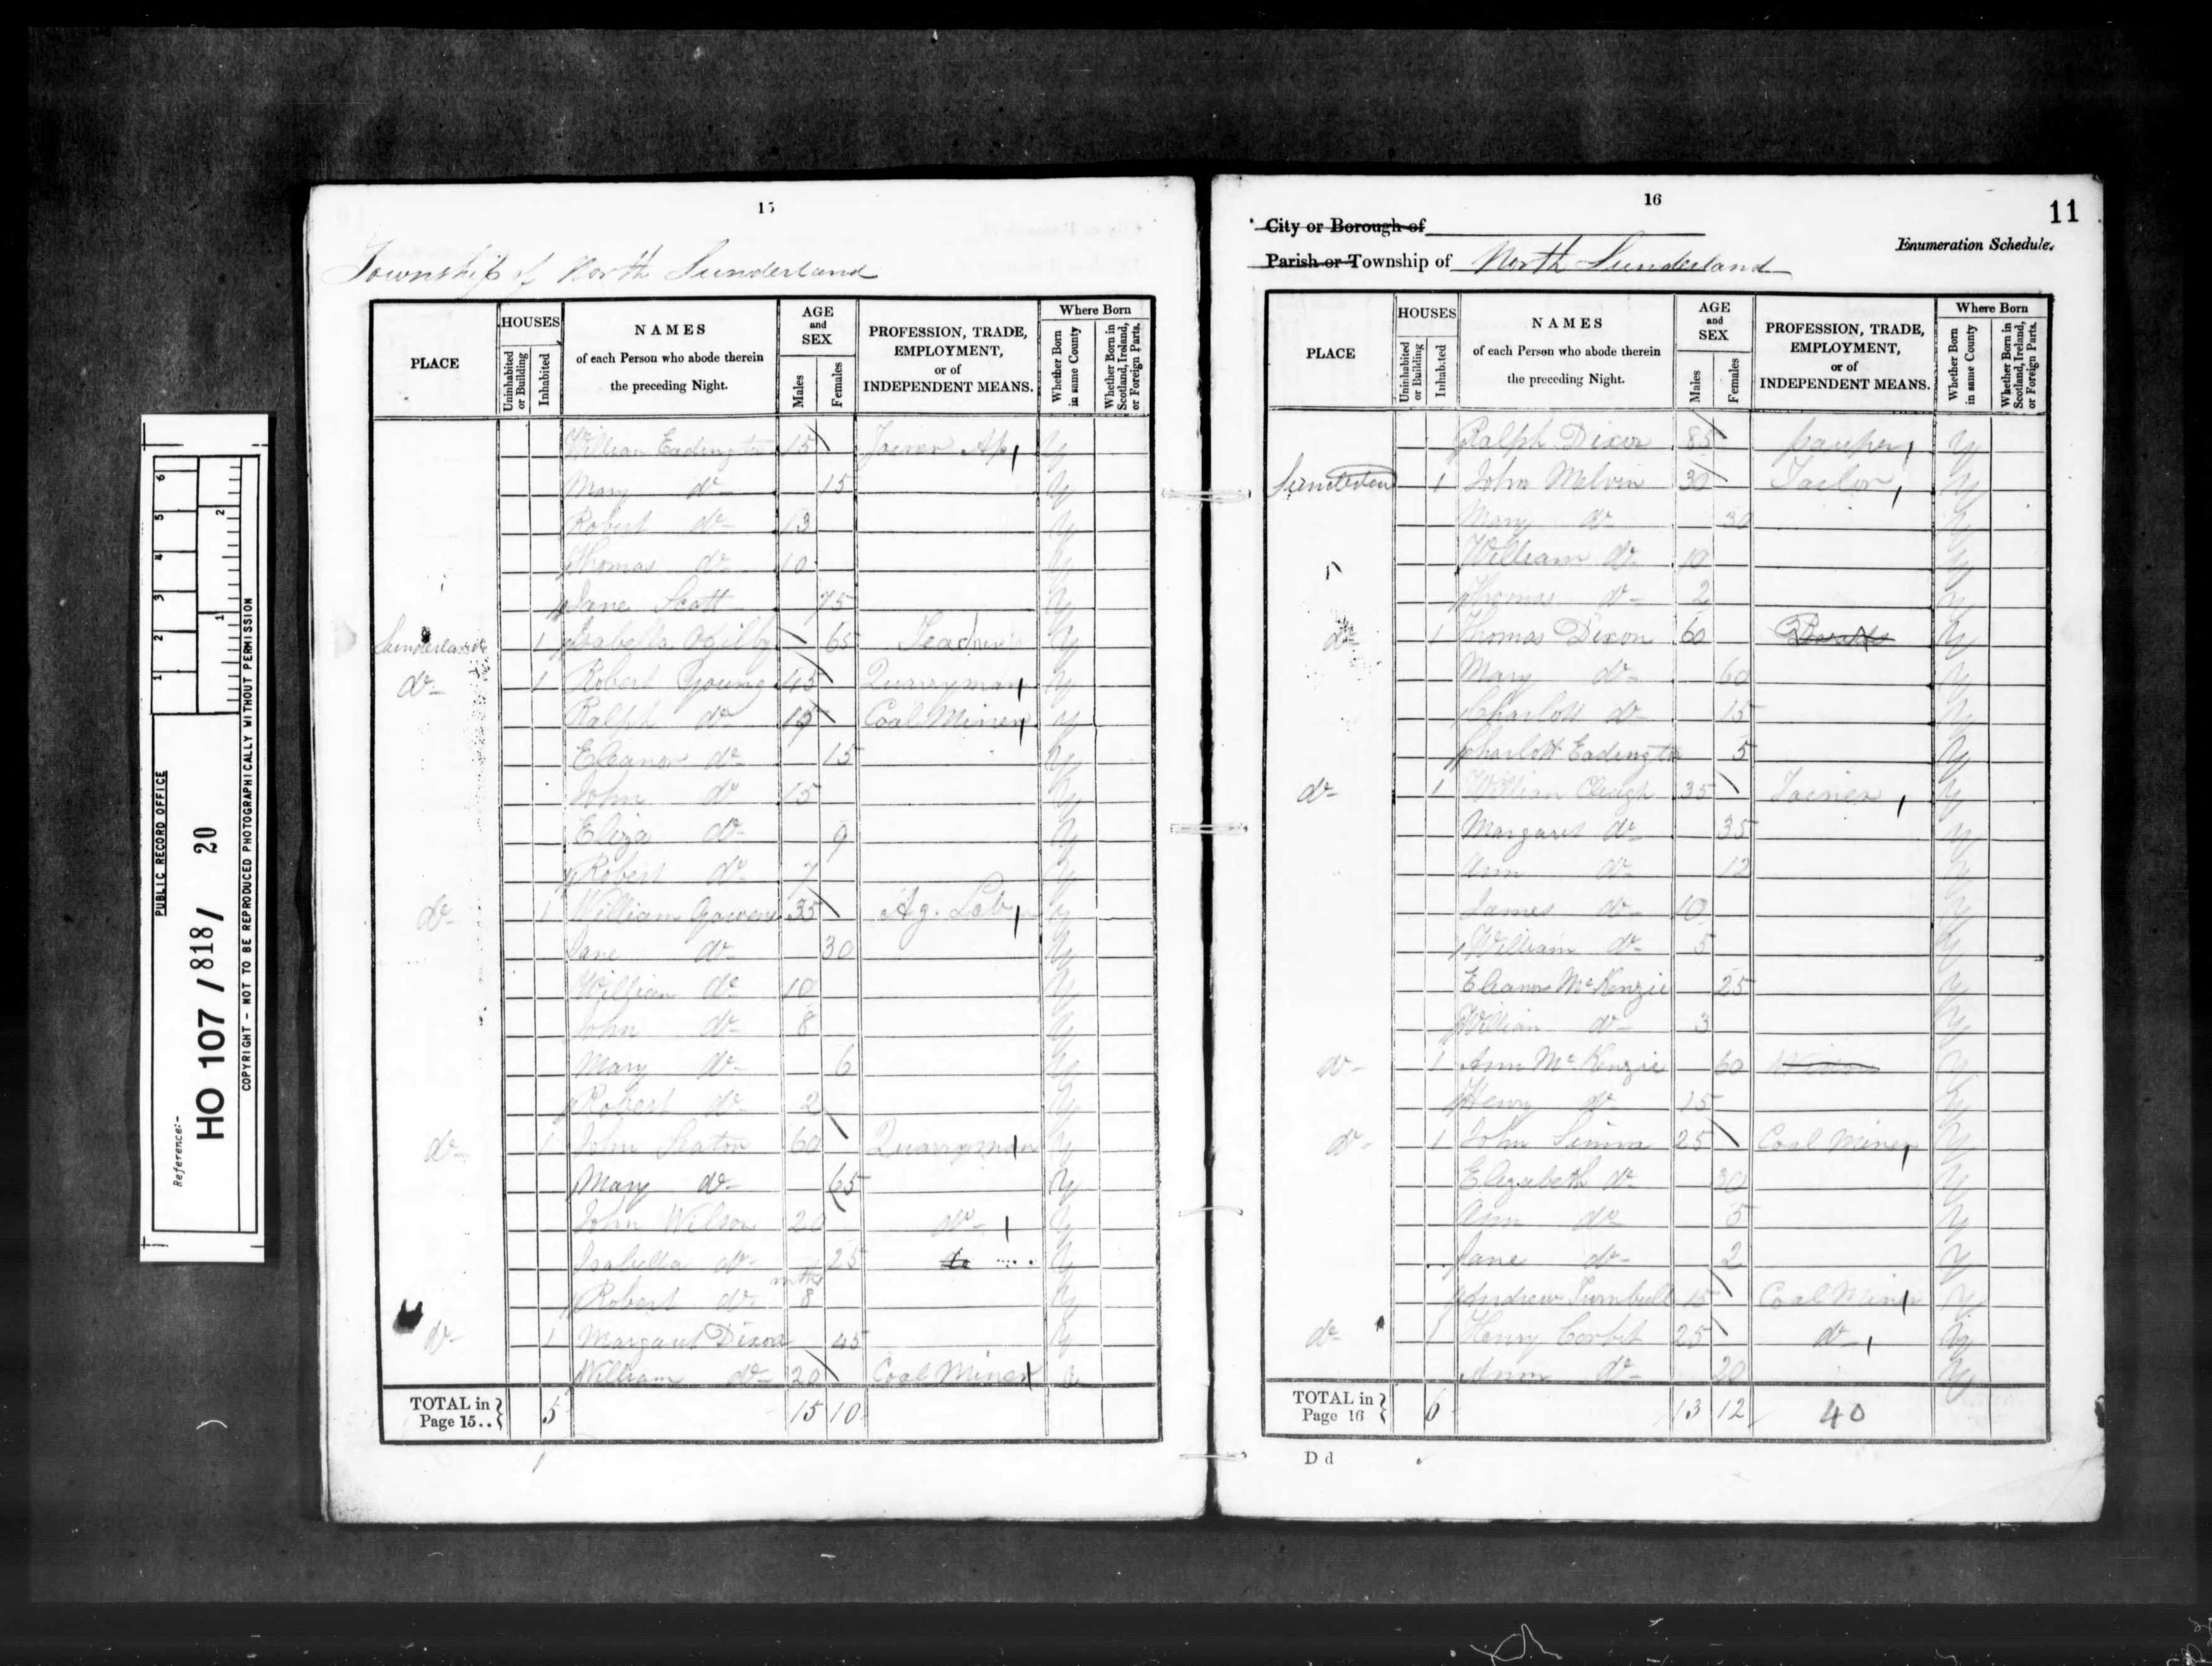 PUBLIC RECORD OFFICE
Reference:-
HO 107 / 818 / 20
COPYRIGHT - NOT TO BE REPRODUCED PHOTOGRAPHICALLY WITHOUT PERMISSION
15
Township of North Sunderland
PLACE
HOUSES
Uninhabited or Building
Inhabited
NAMES
of each Person who abode therein
the preceding Night.
AGE
and
SEX
Males
Females
PROFESSION, TRADE,
EMPLOYMENT,
or of
INDEPENDENT MEANS.
Where Born
Whether Born in same County
Whether Born in Scotland, Ireland, or Foreign Parts.
William Eadington 15 Joiner Ap Y
Mary do 15 Y
Robert do 13 Y
Thomas do 10 Y
Jane Scott 75 Y
Sunderland 1 Isabella Ogilby 65 Y
do 1 Robert Young 45 Quarryman Y
Ralph do Coal Miner Y
Eleanor do 15 Y
John do 15 Y
Eliza do 9 Y
Robert do 7 Y
do 1 William Gowens 35 Ag. Lab Y
Jane do 30 Y
William do 10 Y
John do 8 Y
Mary do 6 Y
Robert do 2 Y
do 1 John Seaton 60 Quarryman Y
Mary do 65 Y
John Wilson 20 do Y
Isabella do 25 do Y
Robert do mths 8 Y
do 1 Margaret Dixon 45 Y
William do 20 Coal Miner
TOTAL in Page 15.. 5 15 10
16
11
City or Borough of
Enumeration Schedule.
Parish or Township of North Sunderland
PLACE
HOUSES
Uninhabited or Building
Inhabited
NAMES
of each Person who abode therein
the preceding Night.
AGE
and
SEX
Males
Females
PROFESSION, TRADE,
EMPLOYMENT,
or of
INDEPENDENT MEANS.
Where Born
Whether Born in same County
Whether Born in Scotland, Ireland, or Foreign Parts.
Ralph Dixon 85 pauper Y
1 John Melvin 30 Tailor Y
Mary do 30 Y
William do 10 Y
Thomas do 2 Y
do 1 Thomas Dixon 60 Y
Mary do 60 Y
Charlott do 15 Y
Charlott Eadington 5 Y
do 1 William Clough 35 Joiner Y
Margaret do 35 Y
Ann do 12 Y
James do 10 Y
William do 5 Y
Eleanor McKenzie 25 Y
William do 3 Y
do 1 Ann McKenzie 60 Y
Henry do 15 Y
do 1 John Simm 25 Coal Miner Y
Elizabeth do 30 Y
Ann do 5 Y
Jane do 2 Y
Andrew Turnbull 15 Coal Miner Y
do 1 Henry Corbit 25 do Y
Ann do 20 Y
TOTAL in Page 16 6 13 12 40
D d